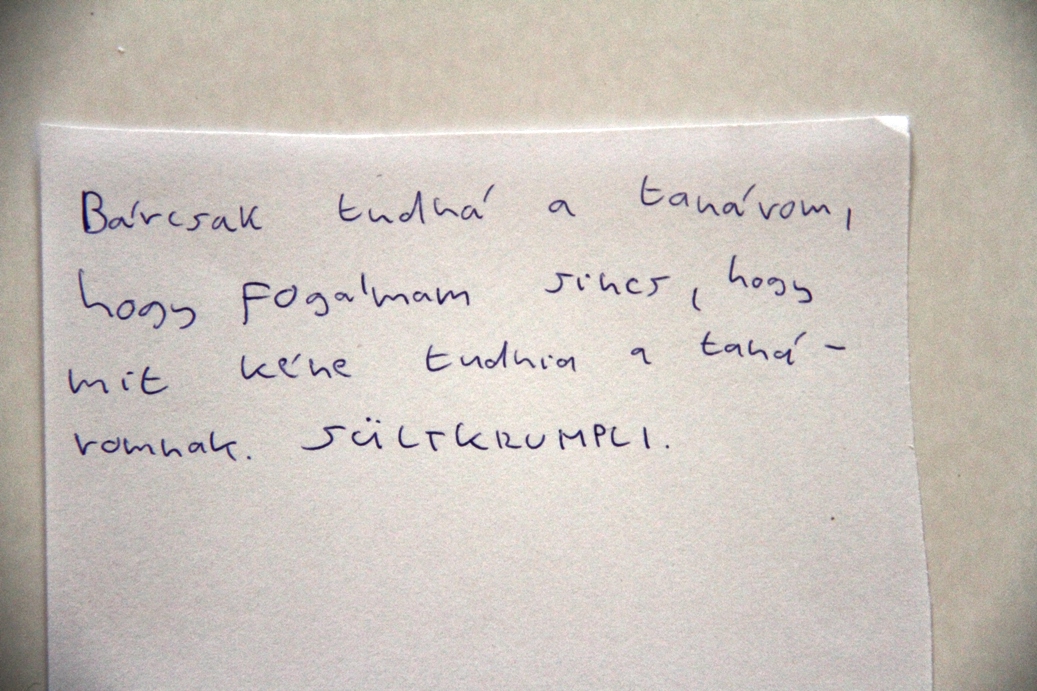 Bárcsak tudná a tanárom,
hogy fogalmam sincs, hogy
mit kéne tudnia a taná-
romnak. SÜLTKRUMPLI.